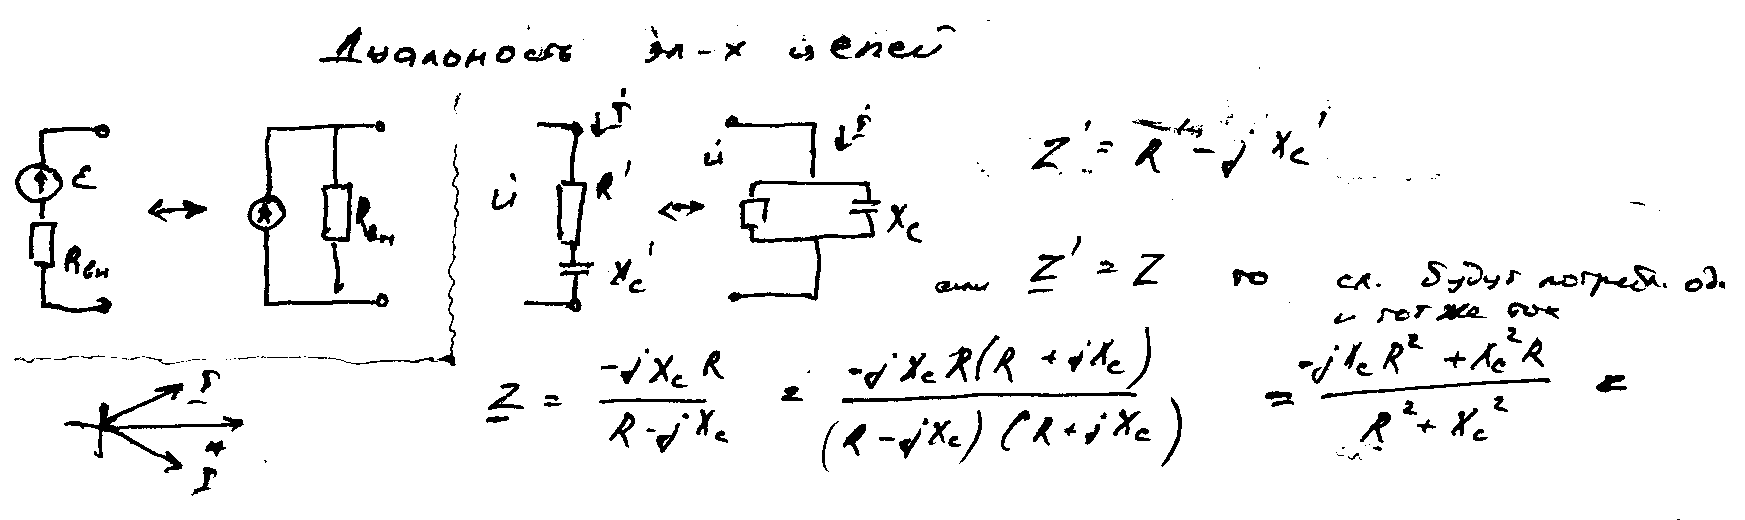 Дуальность эл-х цепей
E
Rвн
Rвн
U̇
İ
R'
Xc'
U̇
İ
Xc
Z' = R' - j Xc'
или Z' = Z то сл. будут потребл. од.
и тот же ток
Z = -jXc R / (R - jXc) = -jXc R(R + jXc) / ((R - jXc)(R + jXc)) = (-jXc R² + Xc² R) / (R² + Xc²) =
I
I